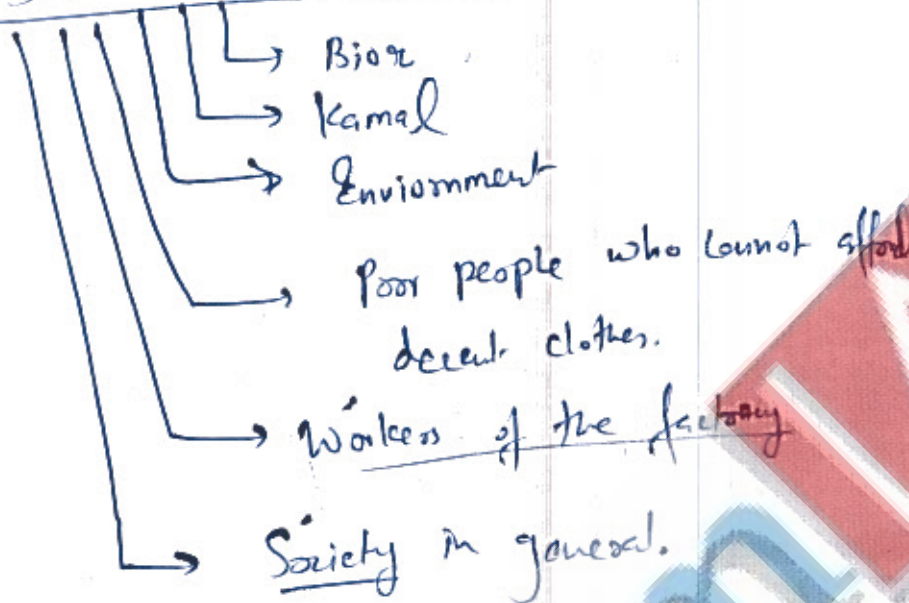 Bior
Kamal
Enviornment
Poor people who cannot afford
decent clothes.
Workers of the factory
Society in general.